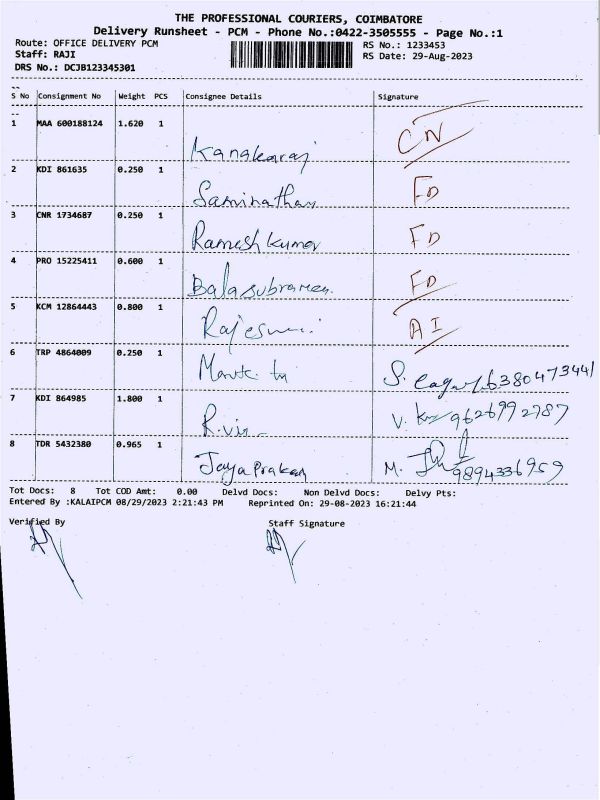 THE PROFESSIONAL COURIERS, COIMBATORE
Delivery Runsheet - PCM - Phone No.:0422-3505555 - Page No.:1
Route: OFFICE DELIVERY PCM RS No.: 1233453
Staff: RAJI RS Date: 29-Aug-2023
DRS No.: DCJB123345301
S No Consignment No Weight PCS Consignee Details Signature
1 MAA 600188124 1.620 1
Kanakaraj CN
2 KDI 861635 0.250 1
Saminathan FD
3 CNR 1734687 0.250 1
Rameshkumar FD
4 PRO 15225411 0.600 1
Balasubraman FD
5 KCM 12864443 0.800 1
AI
6 TRP 4864009 0.250 1
S. 6380473441
7 KDI 864985 1.800 1
V. 9626992787
8 TDR 5432380 0.965 1
Jayaprakash M. 9894336959
Tot Docs: 8 Tot COD Amt: 0.00 Delvd Docs: Non Delvd Docs: Delvy Pts:
Entered By :KALAIPCM 08/29/2023 2:21:43 PM Reprinted On: 29-08-2023 16:21:44
Verified By Staff Signature